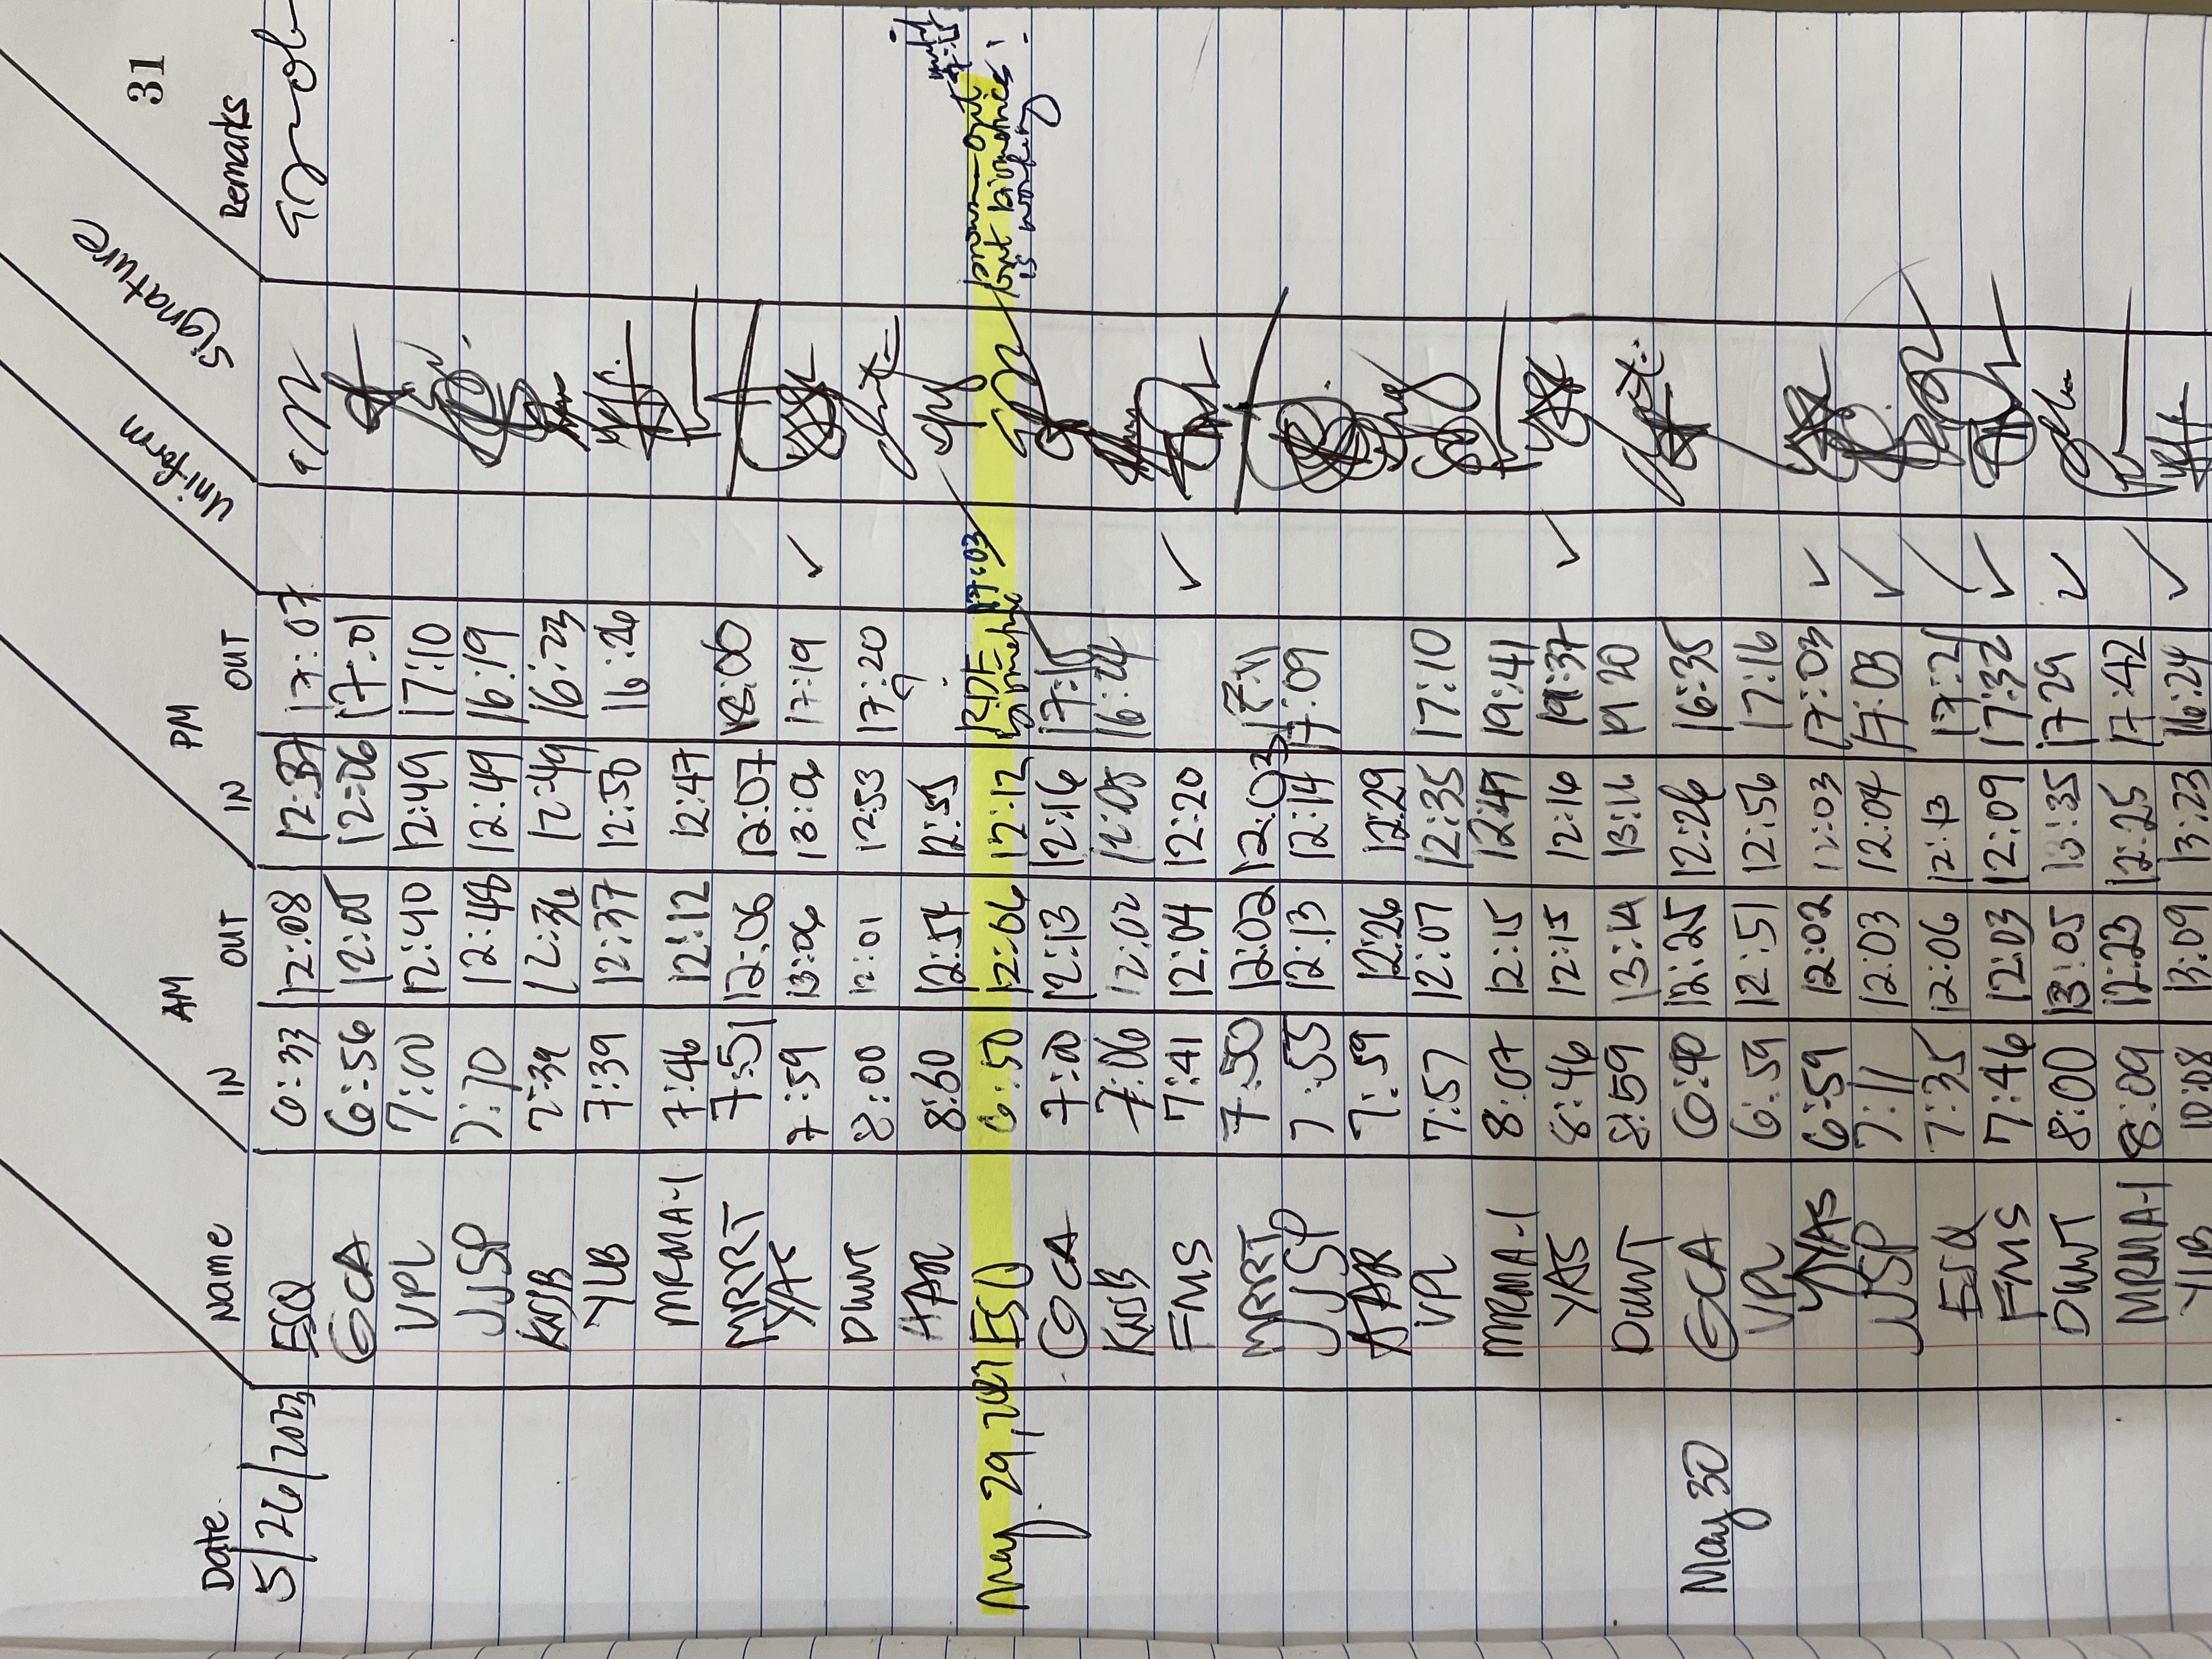 31
Date Name AM PM Uniform Signature Remarks
IN OUT IN OUT
5/26/2023 ESQ 6:33 12:08 12:37 17:07
GCA 6:56 12:05 12:06 17:01
VPL 7:00 12:40 12:49 17:10
JJSP 7:10 12:48 12:49 16:19
KNJB 7:39 12:36 12:49 16:23
YLB 7:39 12:37 12:50 16:26
MRMA-1 7:46 12:12 12:47
MRRT 7:51 12:06 12:07 18:06
YAS 7:59 13:06 13:06 17:19 ✓
DWWT 8:00 12:01 12:53 17:20
AABR 8:60 12:54 12:55
May 29, ESQ 6:50 12:06 12:12 17:03
but biometrics
is working
GCA 7:00 12:13 12:16 17:15
KNJB 7:06 12:02 12:05 16:24
FMS 7:41 12:04 12:20 ✓
MRRT 7:50 12:02 12:03 17:11
JJSP 7:55 12:13 12:14 17:09
AABR 7:59 12:26 12:29
VPL 7:57 12:07 12:35 17:10
MRMA-1 8:07 12:15 12:47 19:41
YAS 8:46 12:15 12:16 19:37 ✓
DWWT 8:59 13:14 13:16 19 20
May 30 GCA 6:40 12:25 12:26 16:35
VPL 6:59 12:51 12:56 17:16
YAS 6:59 12:02 12:03 17:03 ✓
JJSP 7:11 12:03 12:04 17:03 ✓
ESQ 7:35 12:06 12:13 17:21
FMS 7:46 12:03 12:09 17:32 ✓
DWWT 8:00 13:05 13:35 17 29 ✓
MRMA-1 8:09 12:23 12:25 17:42
YLB 10:08 13:09 13:23 16:24 ✓